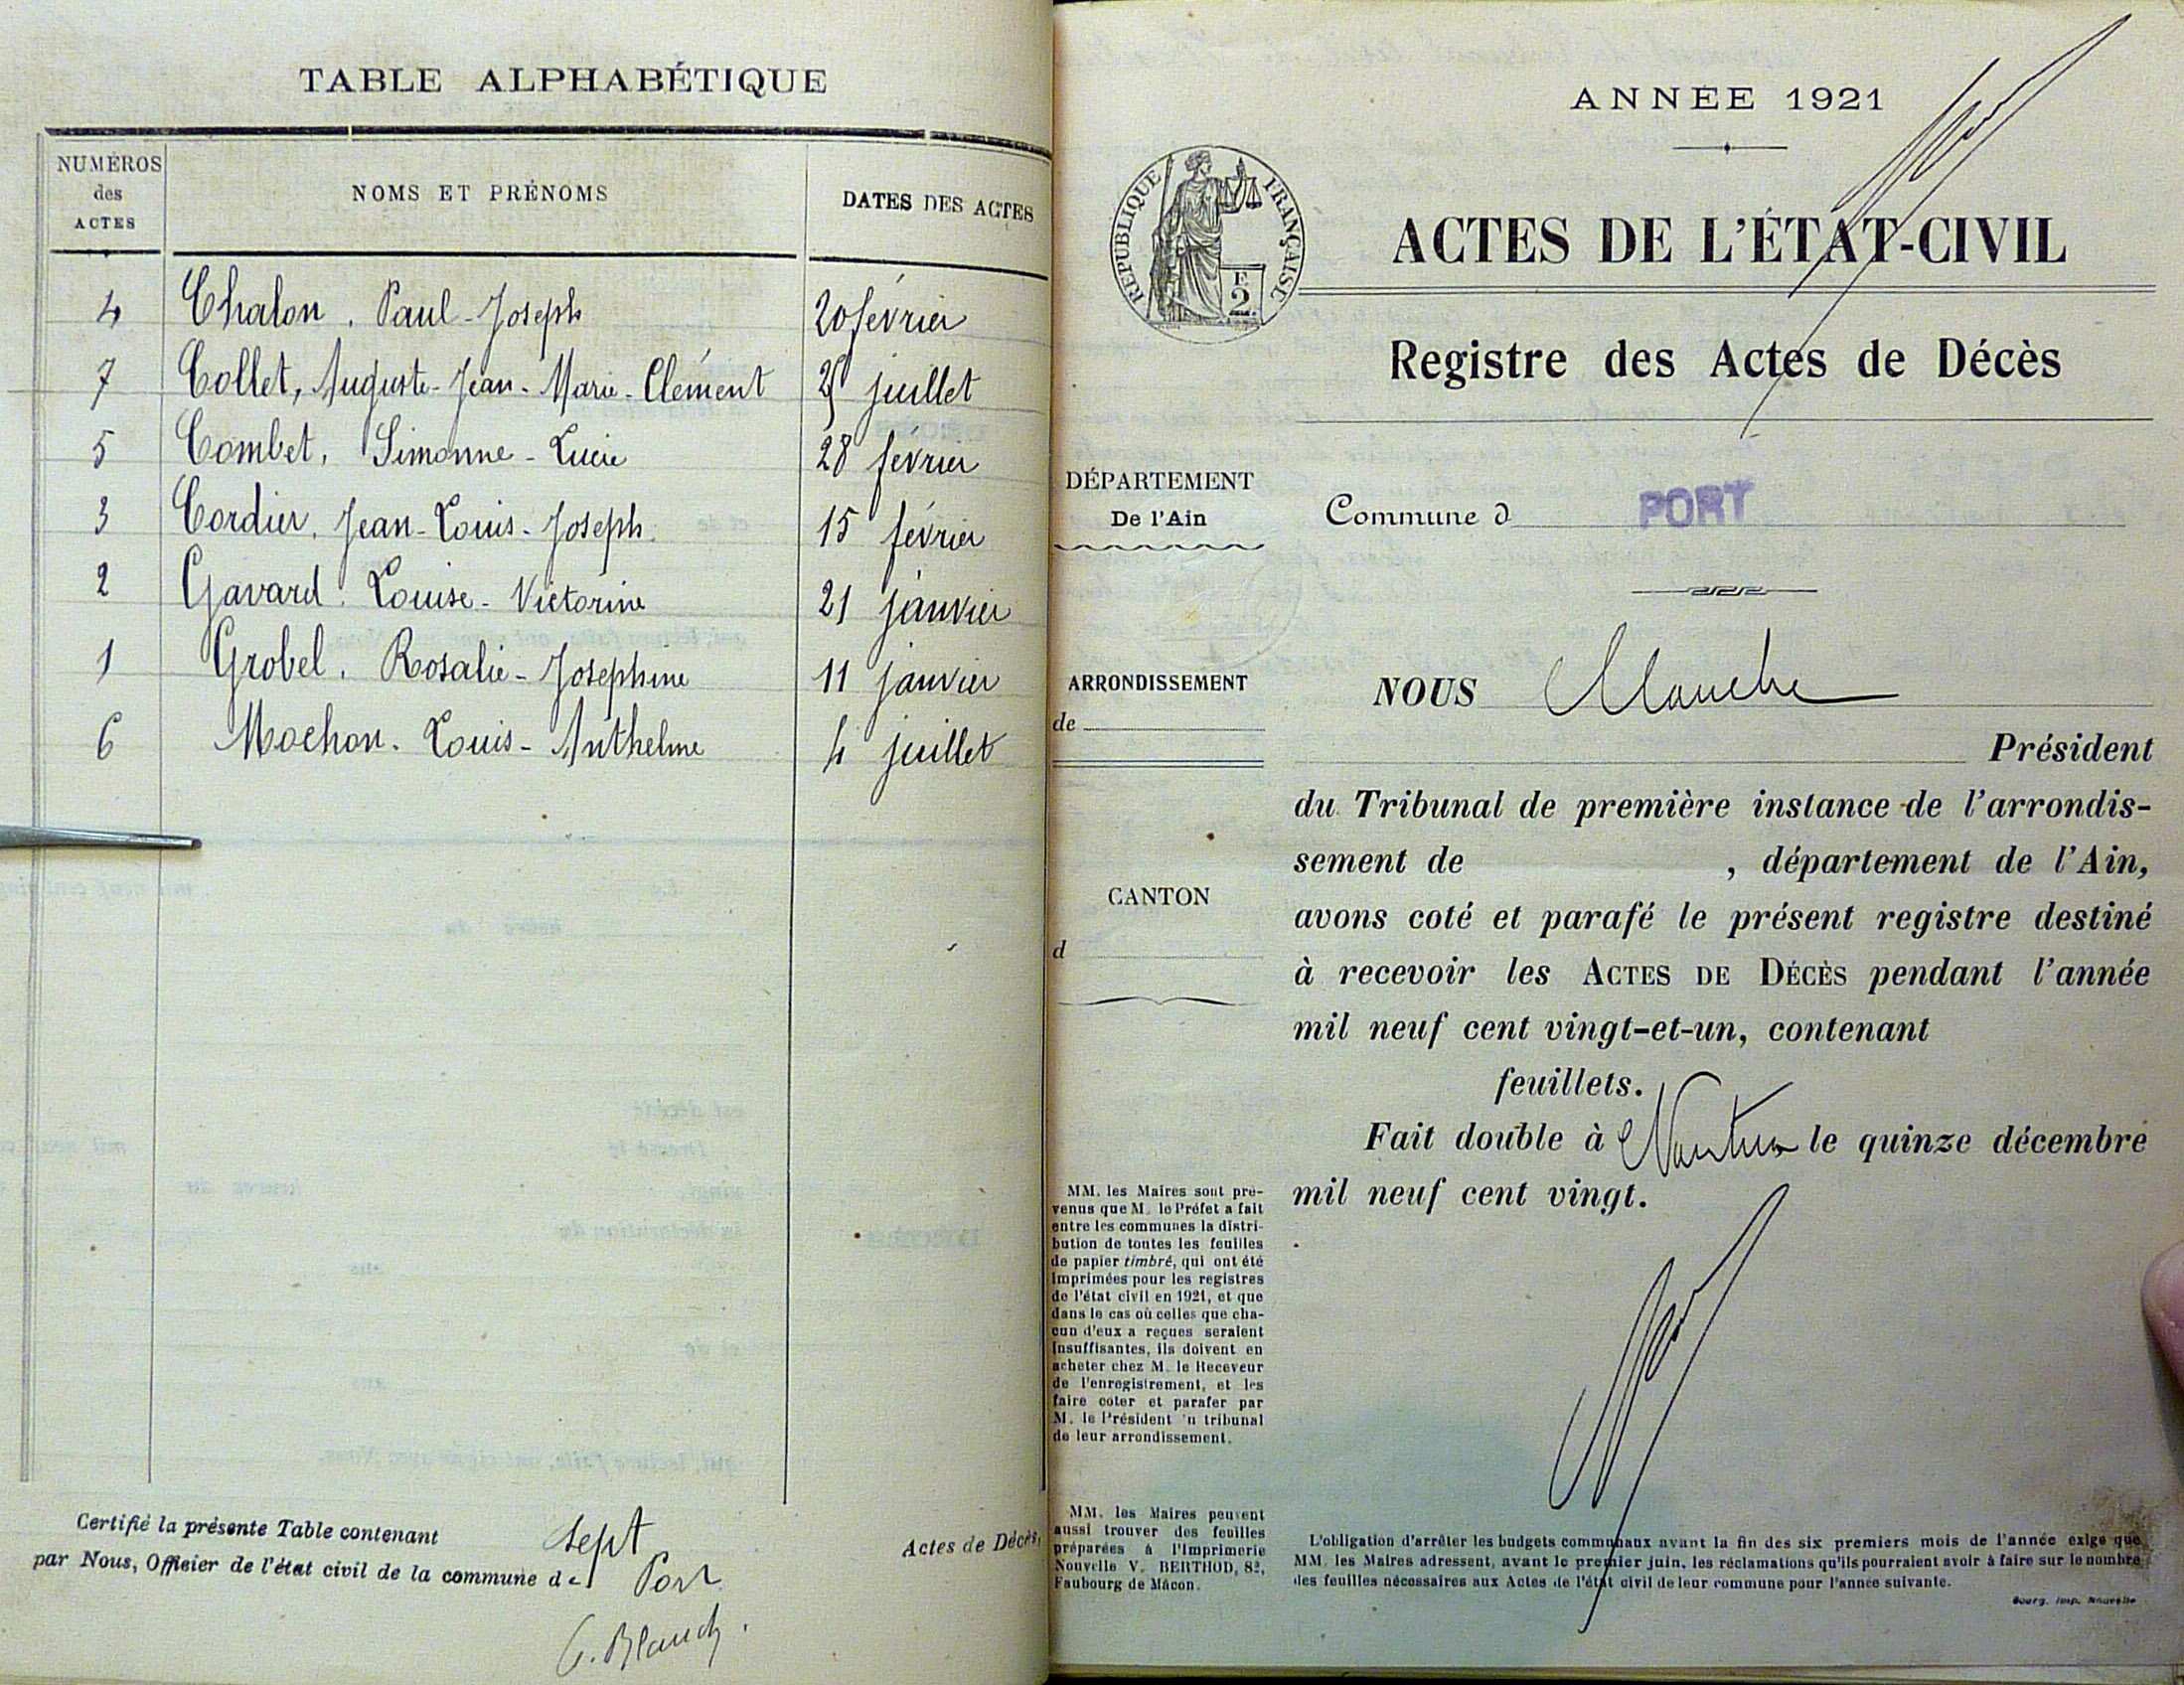 TABLE ALPHABÉTIQUE
NUMÉROS des ACTES
NOMS ET PRÉNOMS
DATES DES ACTES
4 Chalon, Paul-Joseph 20 février
7 Collet, Auguste-Jean-Marie-Clément juillet
5 Combet, Simonne-Lucie 28 février
3 Cordier, Jean-Louis-Joseph. 15 février
2 Gavard. Louise-Victorine 21 janvier
1 Grobel. Rosalie-Josephine 11 janvier
6 Mochon. Louis-Anthelme 4 juillet
Certifié la présente Table contenant sept Actes de Décès,
par Nous, Officier de l'état civil de la commune de Port
G. Blanch.
ANNÉE 1921
RÉPUBLIQUE FRANÇAISE
2
ACTES DE L'ÉTAT-CIVIL
Registre des Actes de Décès
DÉPARTEMENT
De l'Ain
Commune d PORT
ARRONDISSEMENT
de
CANTON
d
NOUS
Président
du Tribunal de première instance de l'arrondis-
sement de , département de l'Ain,
avons coté et parafé le présent registre destiné
à recevoir les ACTES DE DÉCÈS pendant l'année
mil neuf cent vingt-et-un, contenant
feuillets.
Fait double à Nantua le quinze décembre
mil neuf cent vingt.
MM. les Maires sont pré-
venus que M. le Préfet a fait
entre les communes la distri-
bution de toutes les feuilles
de papier timbré, qui ont été
imprimées pour les registres
de l'état civil en 1921, et que
dans le cas où celles que cha-
cun d'eux a reçues seraient
insuffisantes, ils doivent en
acheter chez M. le Receveur
de l'enregistrement, et les
faire coter et parafer par
M. le Président 'u tribunal
de leur arrondissement.
MM. les Maires peuvent
aussi trouver des feuilles
préparées à l'Imprimerie
Nouvelle V. BERTHOD, 82,
Faubourg de Mâcon.
L'obligation d'arrêter les budgets communaux avant la fin des six premiers mois de l'année exige que
MM. les Maires adressent, avant le premier juin, les réclamations qu'ils pourraient avoir à faire sur le nombre
des feuilles nécessaires aux Actes de l'état civil de leur commune pour l'année suivante.
Bourg, Imp. Nouvelle